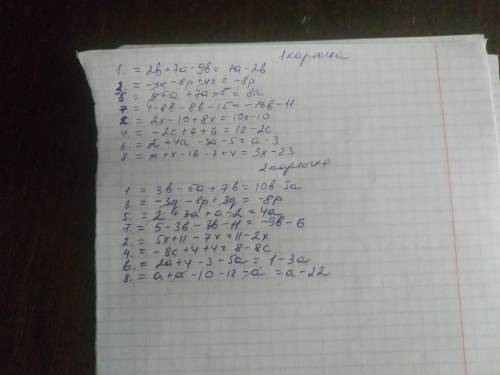 1 карточка
1. = 2b+7a-9b= 7a-2b
3. = -4x-8p+4x= -8p
5 = 5+a+7a-5= 8a
7 = 4-8b-8b-15=-16b-11
2 = 2x-10+8x=10x-10
4. = -2c+6+6=12-2c
6. = 2+4a-3a-5=a-3
8 = x+x-16-7+x=3x-23
2 карточка
1 = 3b-5a+7b=10b-5a
3 = -3g-8p+3g=-8p
5. = 2+3a+a-2=4a
7. = 5-3b-3b-11=-9b-6
2. = 5x+11-7x=11-2x
4. = -8c+4+4=8-8c
6. = 2a+4-3-5a=1-3a
8. = a+a-10-12-a=a-22